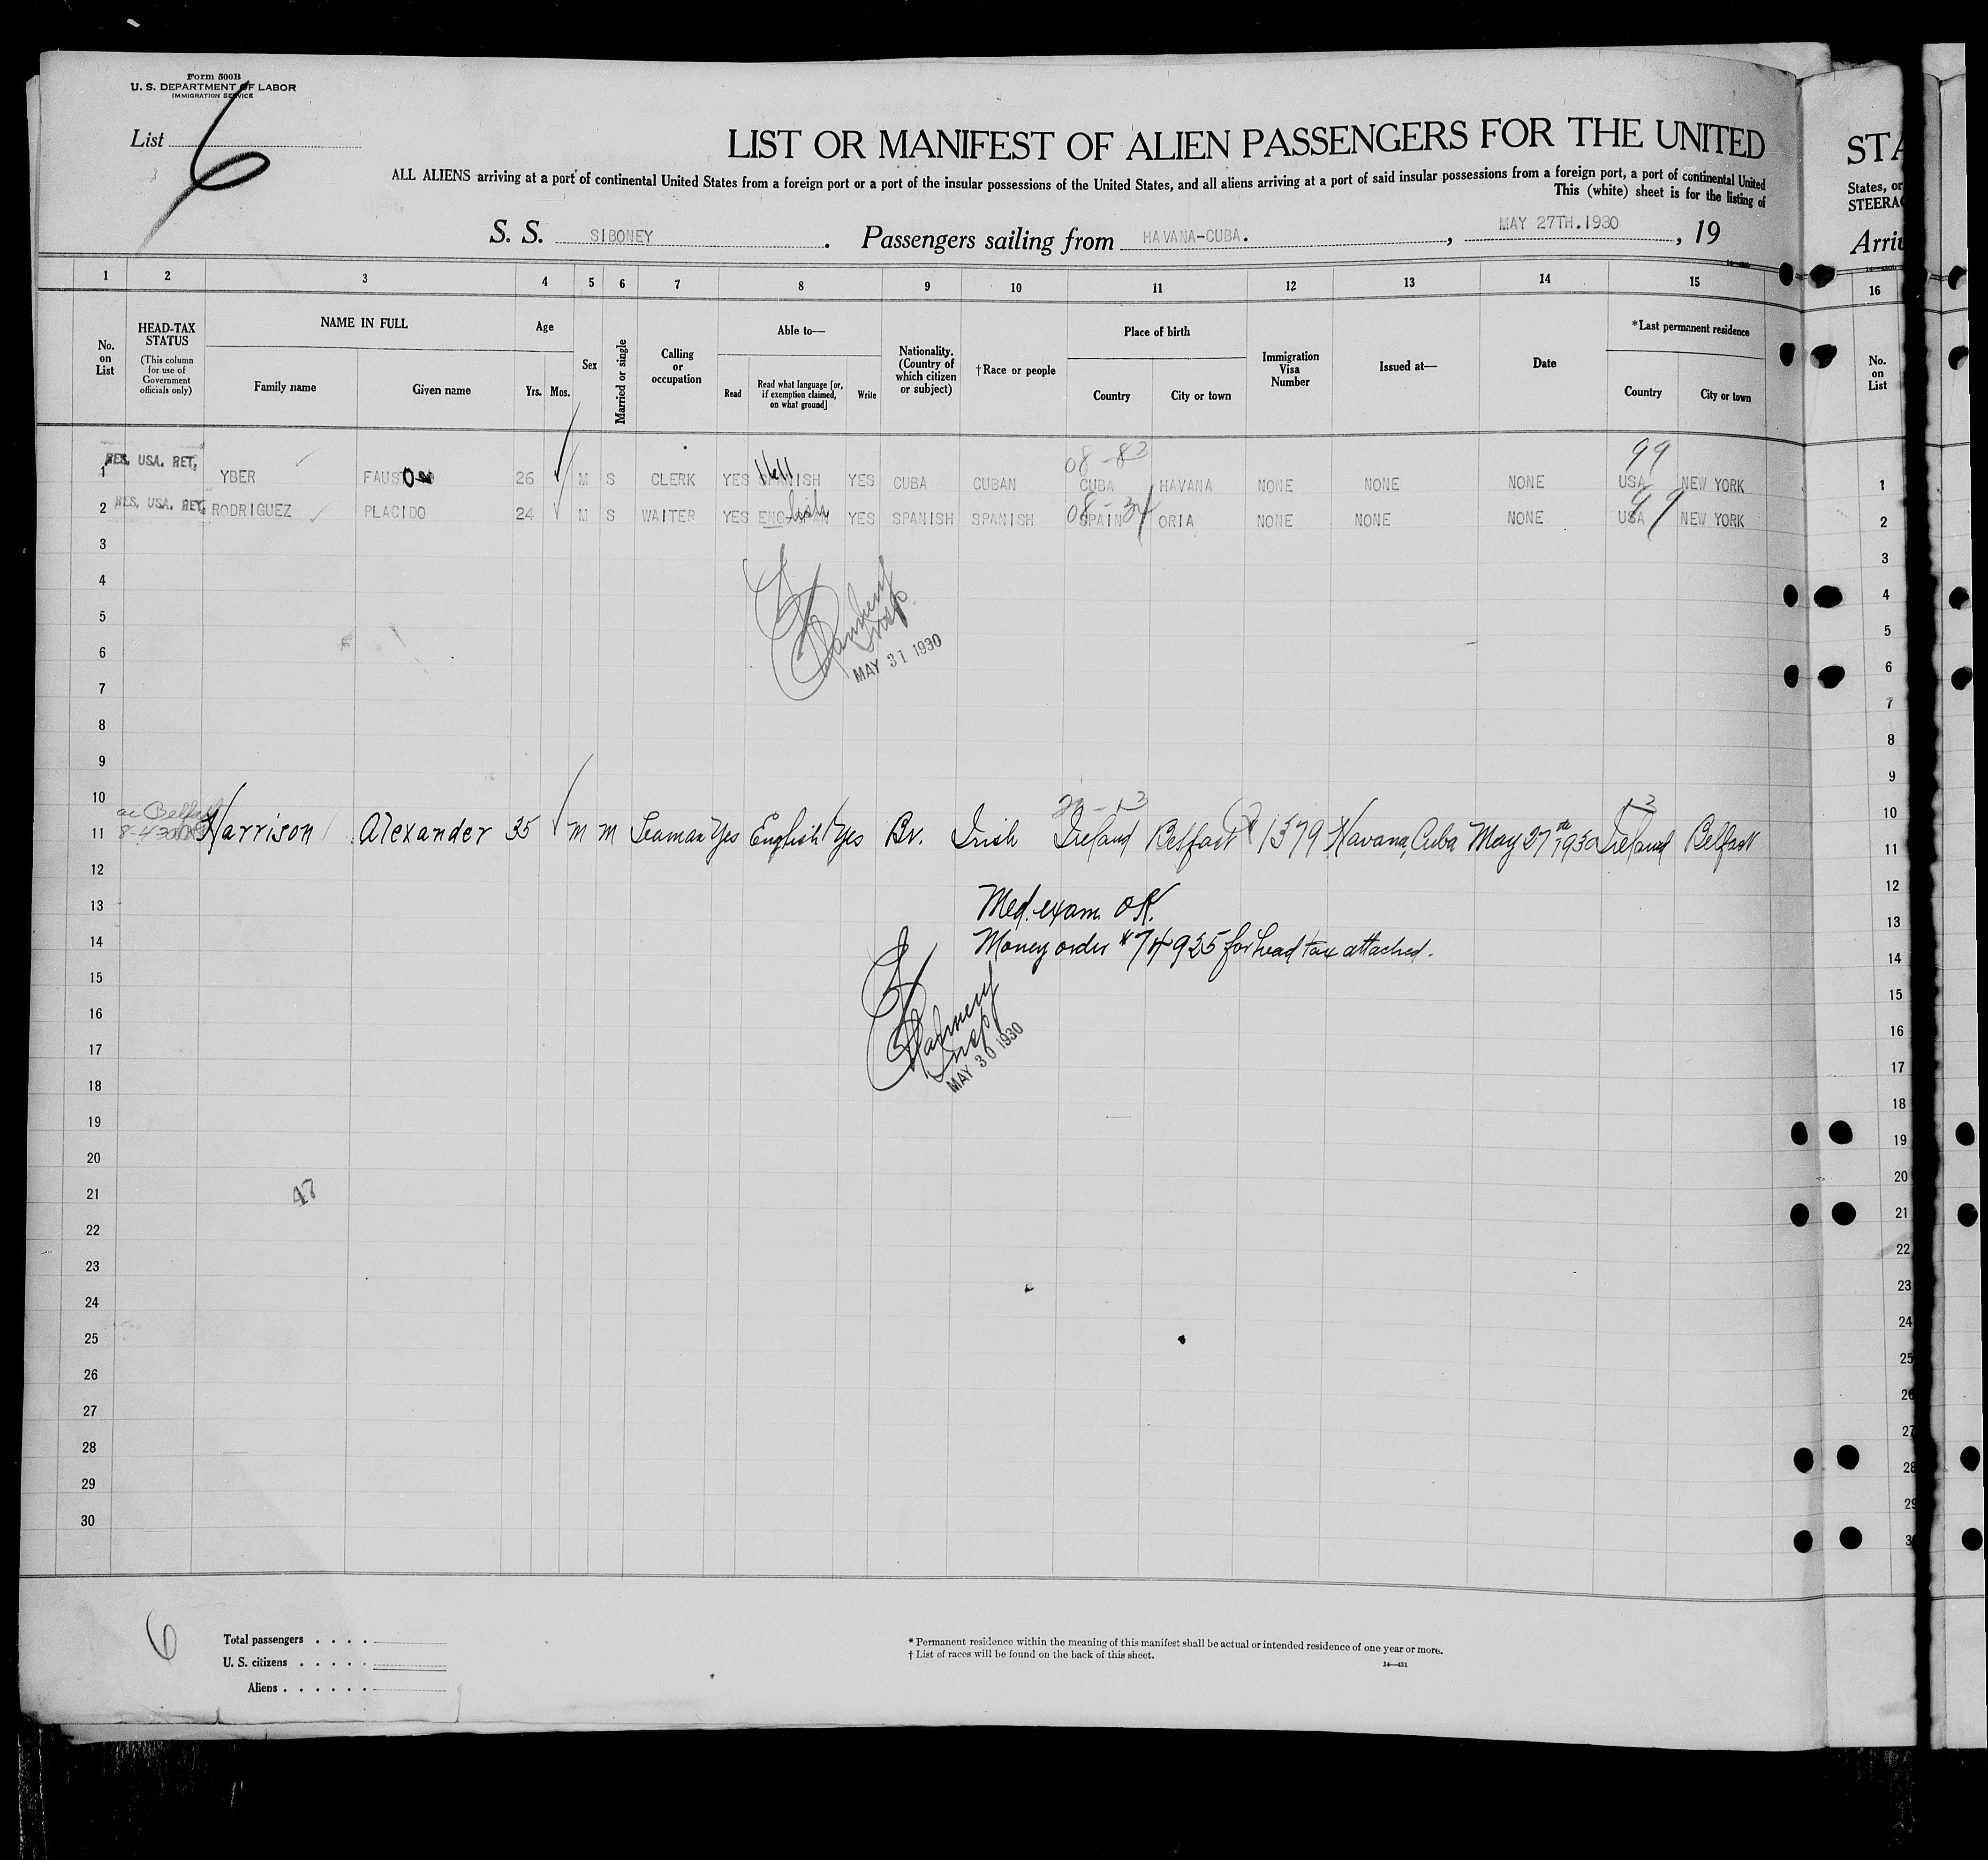 Form 500B
U. S. DEPARTMENT OF LABOR
IMMIGRATION SERVICE
List 6
LIST OR MANIFEST OF ALIEN PASSENGERS FOR THE UNITED
STA
ALL ALIENS arriving at a port of continental United States from a foreign port or a port of the insular possessions of the United States, and all aliens arriving at a port of said insular possessions from a foreign port, a port of continental United
States, or
This (white) sheet is for the listing of
STEERA
S. S. SIBONEY . Passengers sailing from HAVANA-CUBA. , MAY 27TH.1930 , 19
Arri
1 2 3 4 5 6 7 8 9 10 11 12 13 14 15 16
No. on List
HEAD-TAX STATUS
(This column for use of Government officials only)
NAME IN FULL
Family name Given name
Age
Yrs. Mos.
Sex
Married or single
Calling or occupation
Able to—
Read Read what language [or, if exemption claimed, on what ground] Write
Nationality. (Country of which citizen or subject)
†Race or people
Place of birth
Country City or town
Immigration Visa Number
Issued at—
Date
*Last permanent residence
Country City or town
No. on List
08-83 99
1 RES. USA. RET. YBER FAUSTO 26 M S CLERK YES SPANISH YES CUBA CUBAN CUBA HAVANA NONE NONE NONE USA NEW YORK 1
2 RES. USA. RET. RODRIGUEZ PLACIDO 24 M S WAITER YES ENG-SPAN YES SPANISH SPANISH SPAIN ORIA NONE NONE NONE USA NEW YORK 2
3 3
4 4
5 5
6 6
MAY 31 1930
7 7
8 8
9 9
10 10
11 Harrison Alexander 35 M M Seaman Yes English Yes Br. Irish Ireland Belfast 1379 Havana, Cuba May 27th 1930 Ireland Belfast 11
12 12
13 Med. exam OK. 13
14 Money order #74925 for head tax attached. 14
15 15
16 16
Insp
MAY 30 1930
17 17
18 18
19 19
20 20
21 47 21
22 22
23 23
24 24
25 25
26 26
27 27
28 28
29 29
30 3
6
Total passengers . . . .
U. S. citizens . . . . .
Aliens . . . . . .
* Permanent residence within the meaning of this manifest shall be actual or intended residence of one year or more.
† List of races will be found on the back of this sheet.
14—431